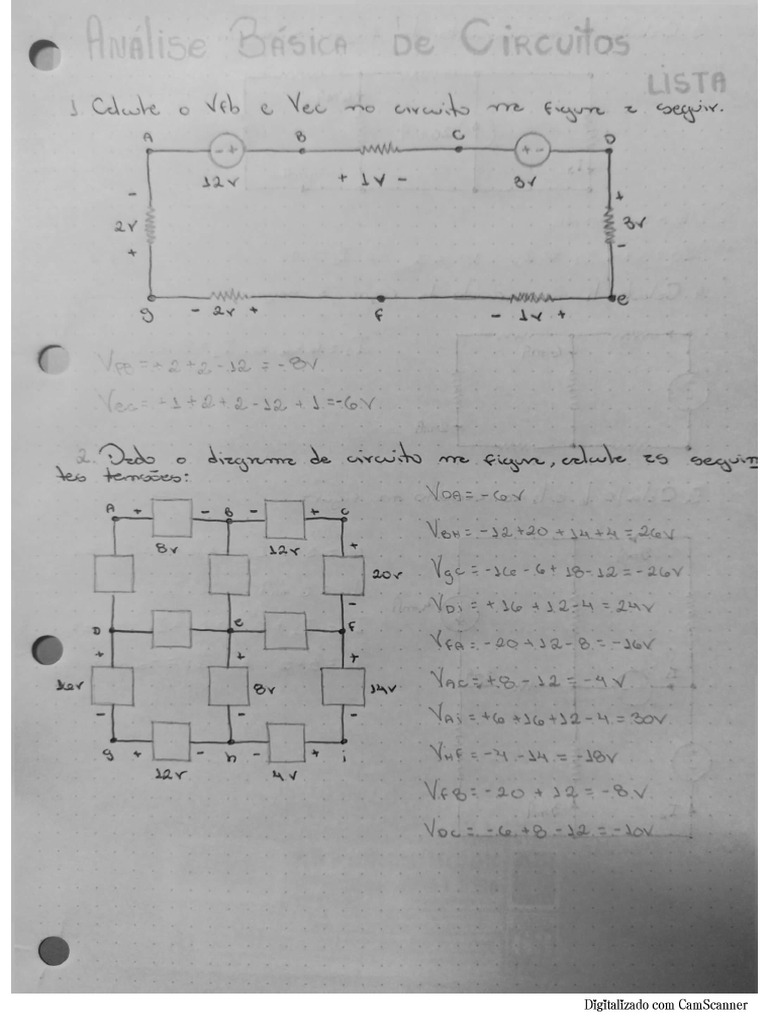 ANÁLISE BÁSICA DE CIRCUITOS
LISTA
1. Calcule o Vfb e Vec no circuito na figura a seguir.
A - + B C + - D
12V + 1V - 3V
- +
2V 3V
+ -
g - 2V + f - 1V + e
VFB = +2+2-12 = -8V
Vec = +1+2+2-12+1 = -6V
2. Dado o diagrama de circuito na figura, calcule as seguin
tes tensões:
A + - B - + C
8V 12V +
20V
-
D e f
+ + +
16V 8V 14V
- - -
g + - h - + i
12V 4V
VDA = -6V
VBH = -12+20+14+4 = 26V
Vgc = -16-6+18-12 = -26V
VDi = +16+12-4 = 24V
VFA = -20+12-8 = -16V
VAC = +8-12 = -4V
VAi = +6+16+12-4 = 30V
VHF = -4-14 = -18V
VFB = -20+12 = -8V
VDC = -6+8-12 = -10V
Digitalizado com CamScanner